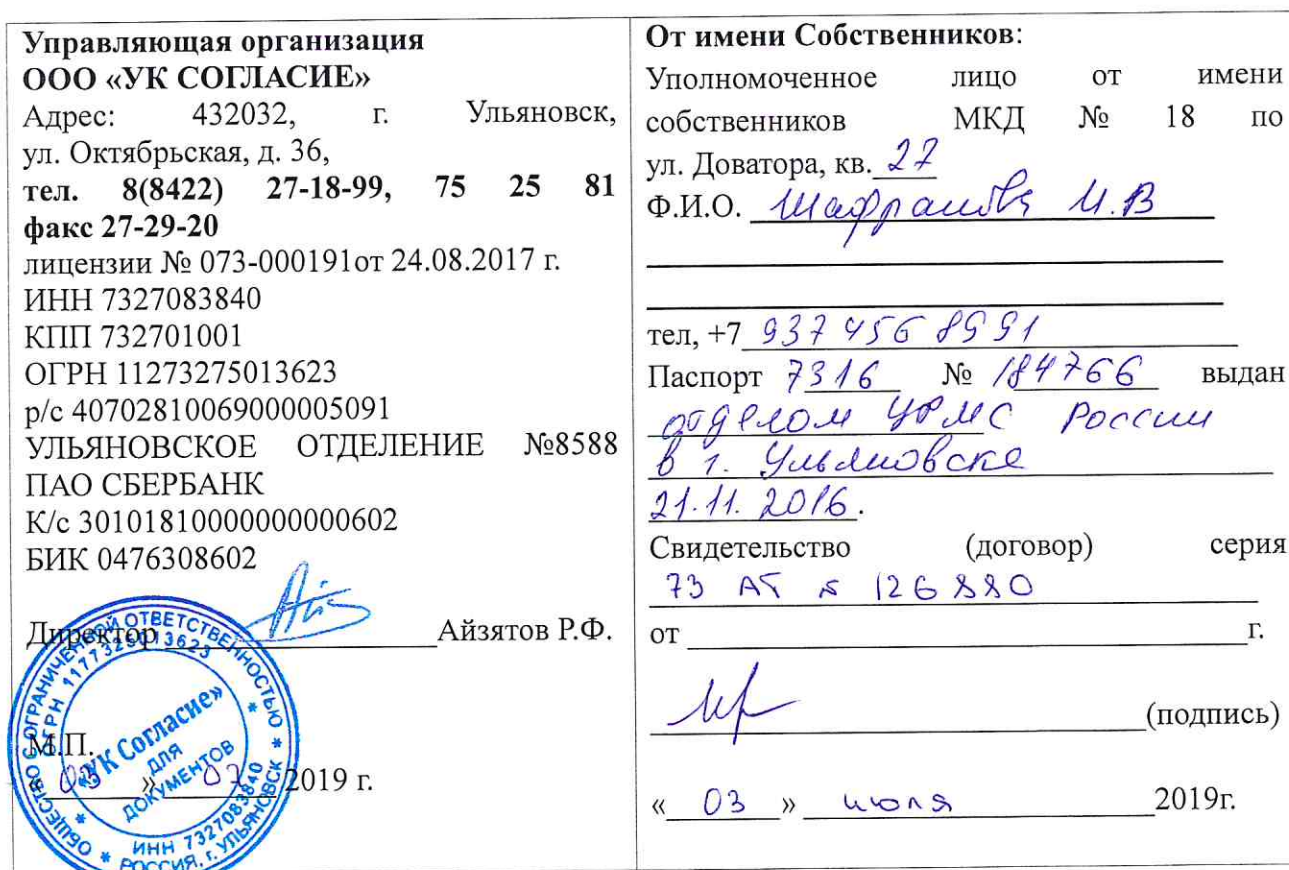 Управляющая организация
ООО «УК СОГЛАСИЕ»
Адрес: 432032, г. Ульяновск,
ул. Октябрьская, д. 36,
тел. 8(8422) 27-18-99, 75 25 81
факс 27-29-20
лицензии № 073-000191от 24.08.2017 г.
ИНН 7327083840
КПП 732701001
ОГРН 11273275013623
р/с 40702810069000005091
УЛЬЯНОВСКОЕ ОТДЕЛЕНИЕ №8588
ПАО СБЕРБАНК
К/с 30101810000000000602
БИК 0476308602
Директор Айзятов Р.Ф.
М.П.
« 03 » 07 2019 г.
ОБЩЕСТВО С ОГРАНИЧЕННОЙ ОТВЕТСТВЕННОСТЬЮ
ОГРН 1177325013623
«УК Согласие»
ДЛЯ
ДОКУМЕНТОВ
ИНН 7327083840
РОССИЯ, г. УЛЬЯНОВСК
От имени Собственников:
Уполномоченное лицо от имени
собственников МКД № 18 по
ул. Доватора, кв. 27
Ф.И.О. И.В
тел, +7 937 456 8991
Паспорт 7316 № 184766 выдан
отделом УФМС России
в г. Ульяновске
21.11.2016.
Свидетельство (договор) серия
73 АТ 126880
от г.
(подпись)
« 03 » июля 2019г.